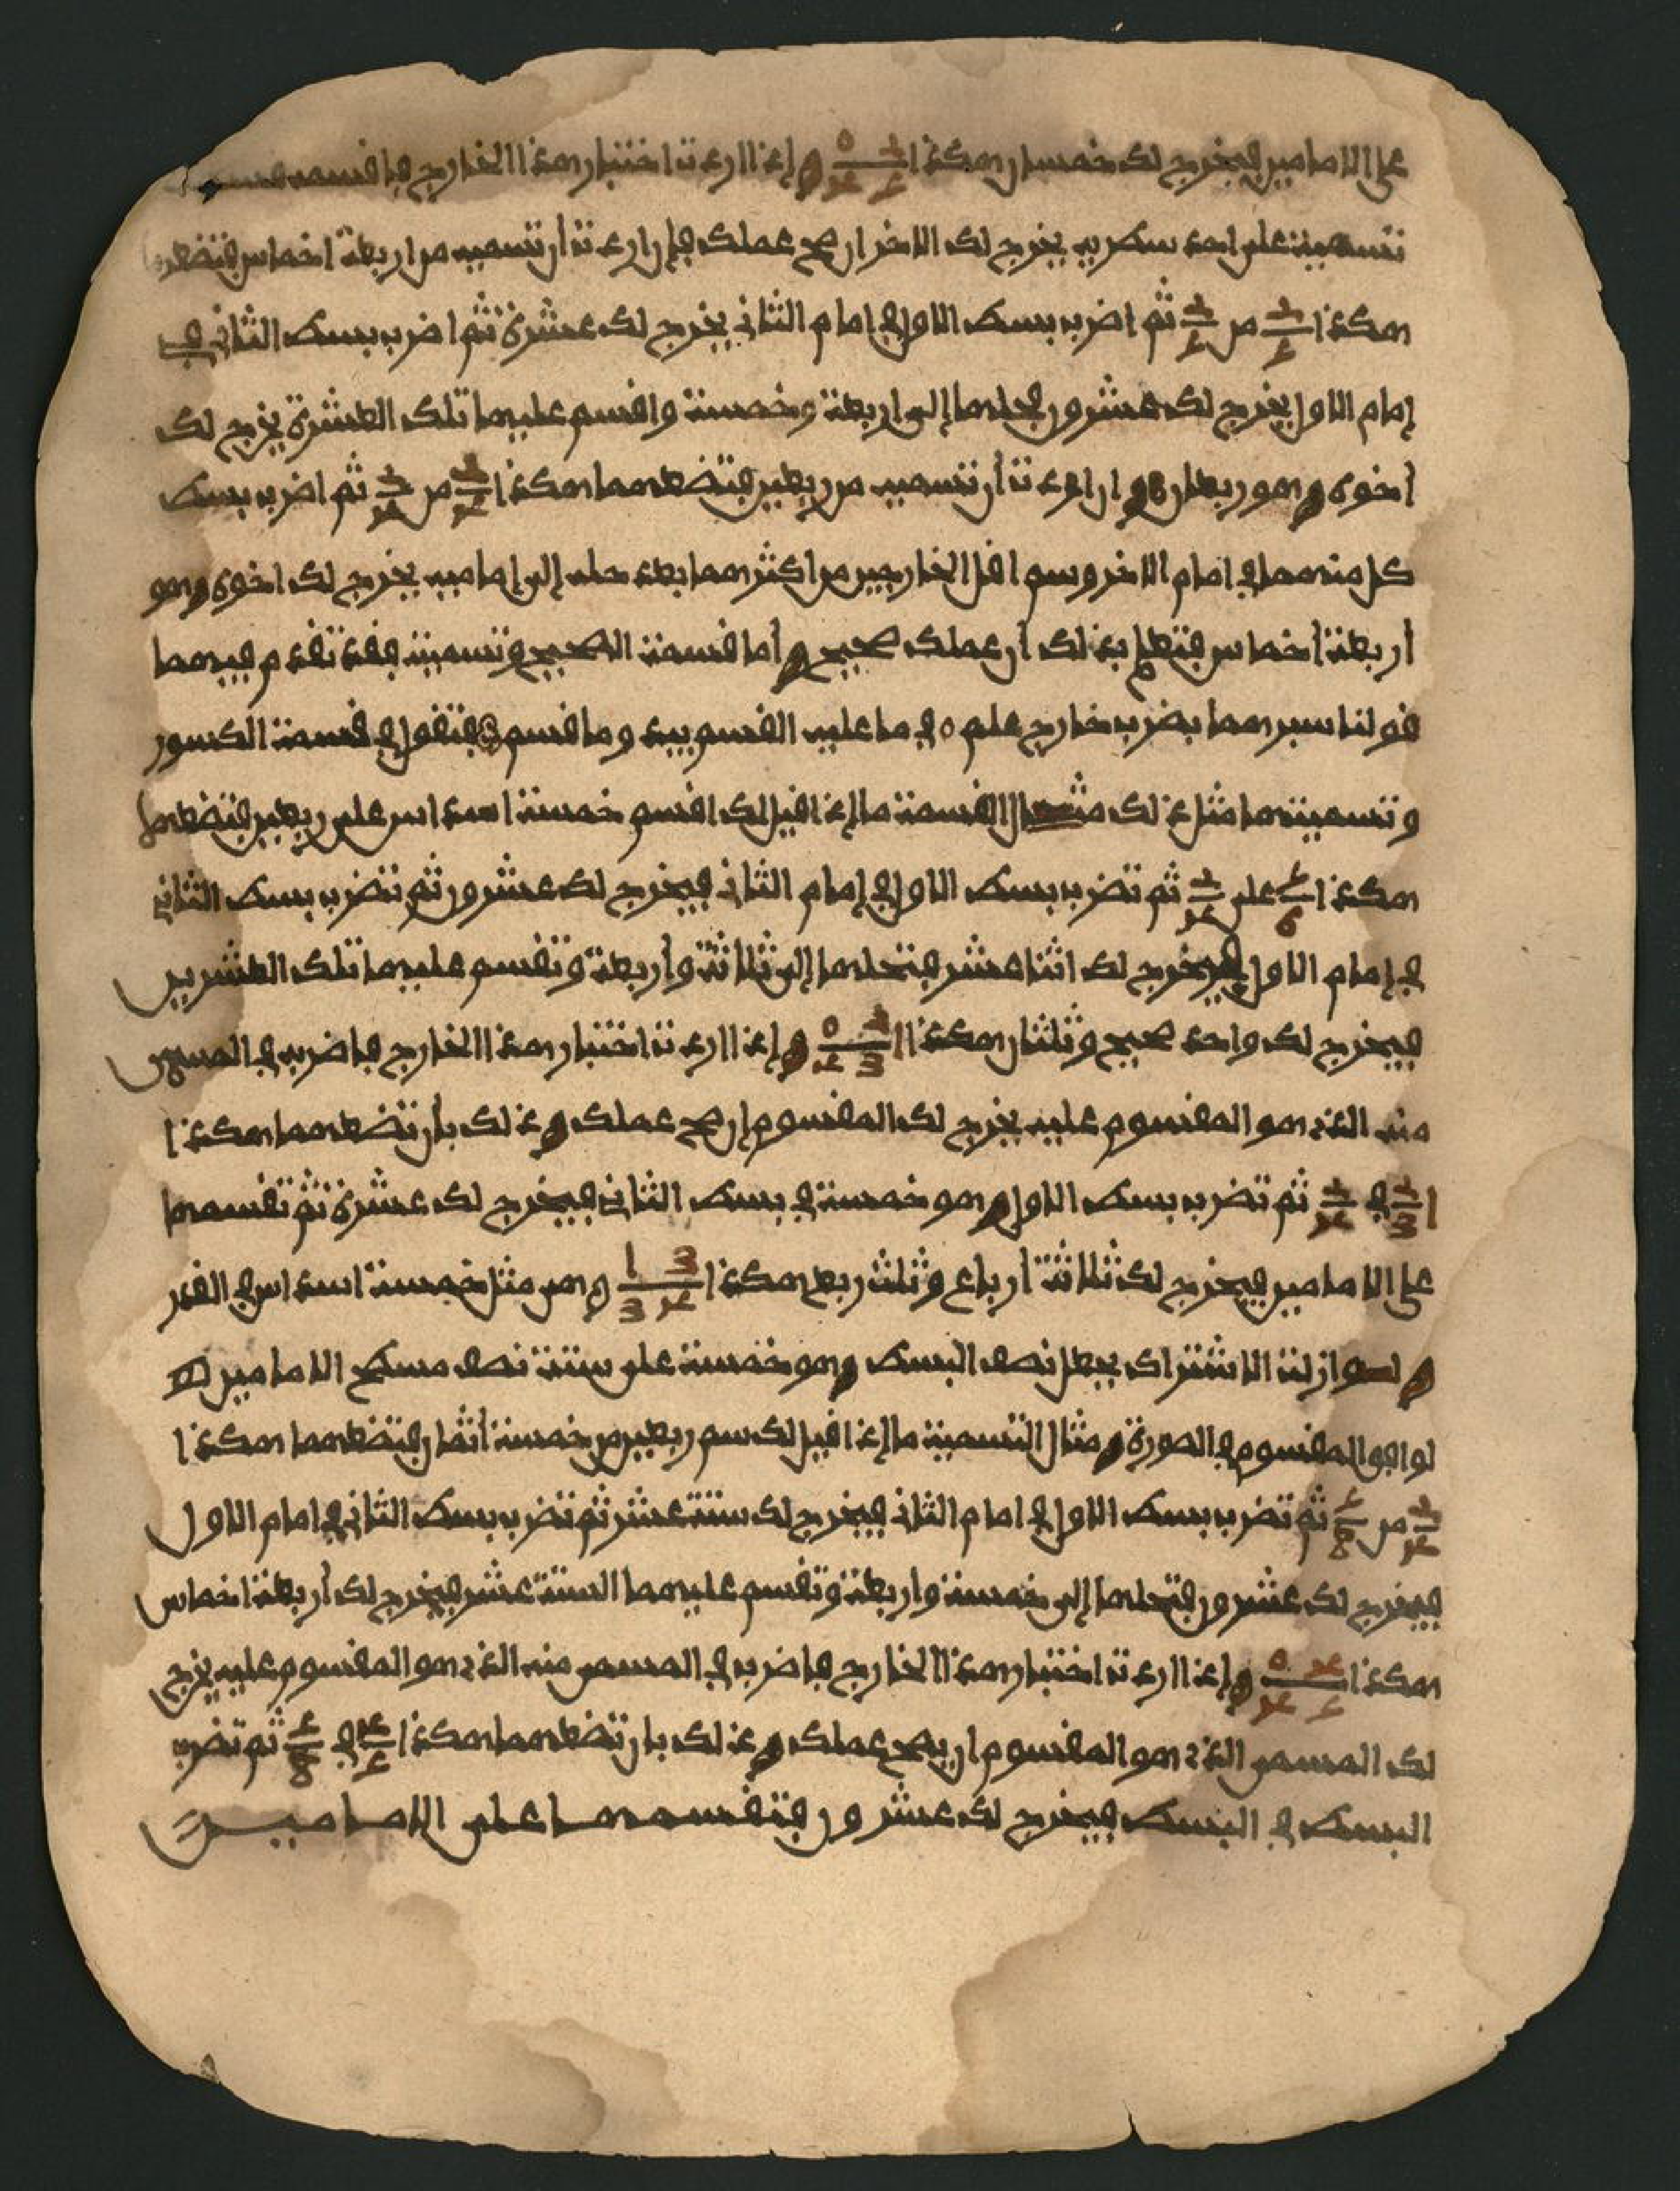 على الامامين فيخرج لك خمسان هكذا 2 0 / 5 4 وإذا اردت اختبار هذا الخارج فاقسمه
تسميته على احد سطريه يخرج لك الاخر ان صح عملك فإن اردت أن تسميه من اربعة اخماس فتضعهما
هكذا 2/5 من 4/5 ثم اضرب بسط الاول في امام الثاني يخرج لك عشرة ثم اضرب بسط الثاني في
إمام الاول يخرج لك عشرون فحلها إلى اربعة وخمسة واقسم عليهما تلك العشرة يخرج لك
أخوى وهو ربعان وان اردت أن تسميه من ربعين فتضعهما هكذا 2/4 من 2/4 ثم اضرب بسط
كل منهما في امام الاخر وسم اقل الخارجين من اكثرهما بعد حله إلى إماميه يخرج لك اخوى وهو
أربعة أخماس فتعلم بذلك أن عملك صحيح وأما قسمة الصحيح وتسميته فقد تقدم فيهما
قولنا سبرهما بضرب خارج علم في ما عليه القسم يبد وما قسم فتقول في قسمة الكسور
وتسميتها مثل ذلك مثال القسمة ما إذا قيل لك اقسم خمسة اسداس على ربعين فتضعها
هكذا 5/6 على 2/4 ثم تضرب بسط الاول في إمام الثاني فيخرج لك عشرون ثم تضرب بسط الثاني
في إمام الاول فيخرج لك اثنا عشر فتحلها إلى ثلاثة وأربعة وتقسم عليهما تلك العشرين
فيخرج لك واحد صحيح وثلثان هكذا 1 2 0 / 3 4 وإذا اردت اختبار هذا الخارج فاضربه في المسمى
منه الذي هو المقسوم عليه يخرج لك المقسوم إن صح عملك وذلك بأن تضعهما هكذا
1 2/3 في 2/4 ثم تضرب بسط الاول وهو خمسة في بسط الثاني فيخرج لك عشرة ثم تقسمها
على الامامين فيخرج لك ثلاثة أرباع وثلث ربع هكذا 3 1 / 4 3 وهي مثل خمسة اسداس في القدر
ولو ازلت الاشتراك بجعل نصف البسط وهو خمسة على ستة نصف مسطح الامامين
لوافق المقسوم في الصورة ومثال التسمية ما إذا قيل لك سم ربعين من خمسة أثمان فتضعهما هكذا
2/4 من 5/8 ثم تضرب بسط الاول في امام الثاني فيخرج لك ستة عشر ثم تضرب بسط الثاني في امام الاول
فيخرج لك عشرون فتحلها إلى خمسة واربعة وتقسم عليهما الستة عشر فيخرج لك أربعة اخماس
هكذا 4 0 / 5 4 وإذا اردت اختبار هذا الخارج فاضربه في المسمى منه الذي هو المقسوم عليه يخرج
لك المسمى الذي هو المقسوم إن يصح عملك وذلك بان تضعهما هكذا 4/5 في 5/8 ثم تضرب
البسط في البسط فيخرج لك عشرون فتقسمها على الامامين